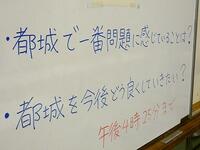 ・都城で一番問題に感じていることは?
・都城を今後どう良くしていきたい?
午後4時25分まで